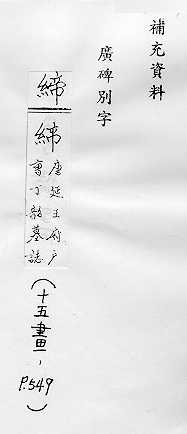 補充資料
廣碑別字
締
締
唐延王府户
曹丁韶墓誌
(十五畫，
P.549)